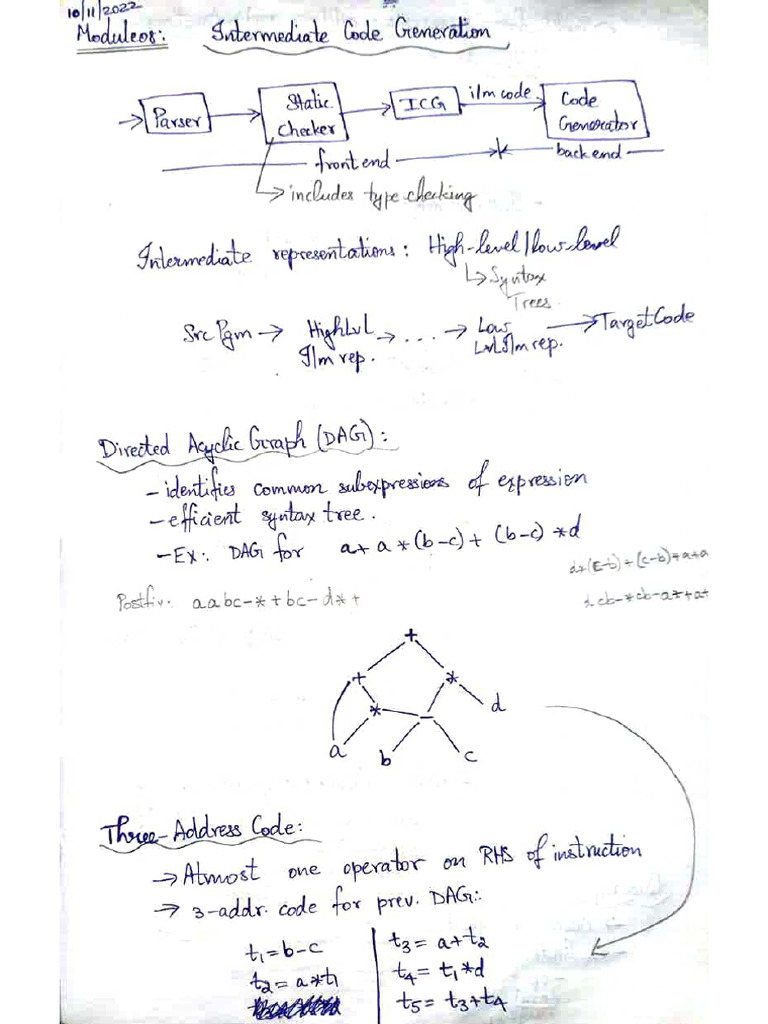 10/11/2022
Module05: Intermediate Code Generation
Parser
Static Checker
ICG
i/m code
Code Generator
front end
back end
includes type checking
Intermediate representations: High-level/low-level
Syntax
Trees
Src Pgm → High Lvl → ... → Low → Target Code
I/m rep. Lvl I/m rep.
Directed Acyclic Graph (DAG):
- identifies common subexpressions of expression
- efficient syntax tree.
- Ex: DAG for a + a * (b-c) + (b-c) * d
Postfix: a a b c - * + b c - d * +
+
+ *
* -
d
a b c
Three-Address Code:
→ Atmost one operator on RHS of instruction
→ 3-addr. code for prev. DAG:
t1 = b-c
t2 = a*t1
t3 = a+t2
t4 = t1*d
t5 = t3+t4